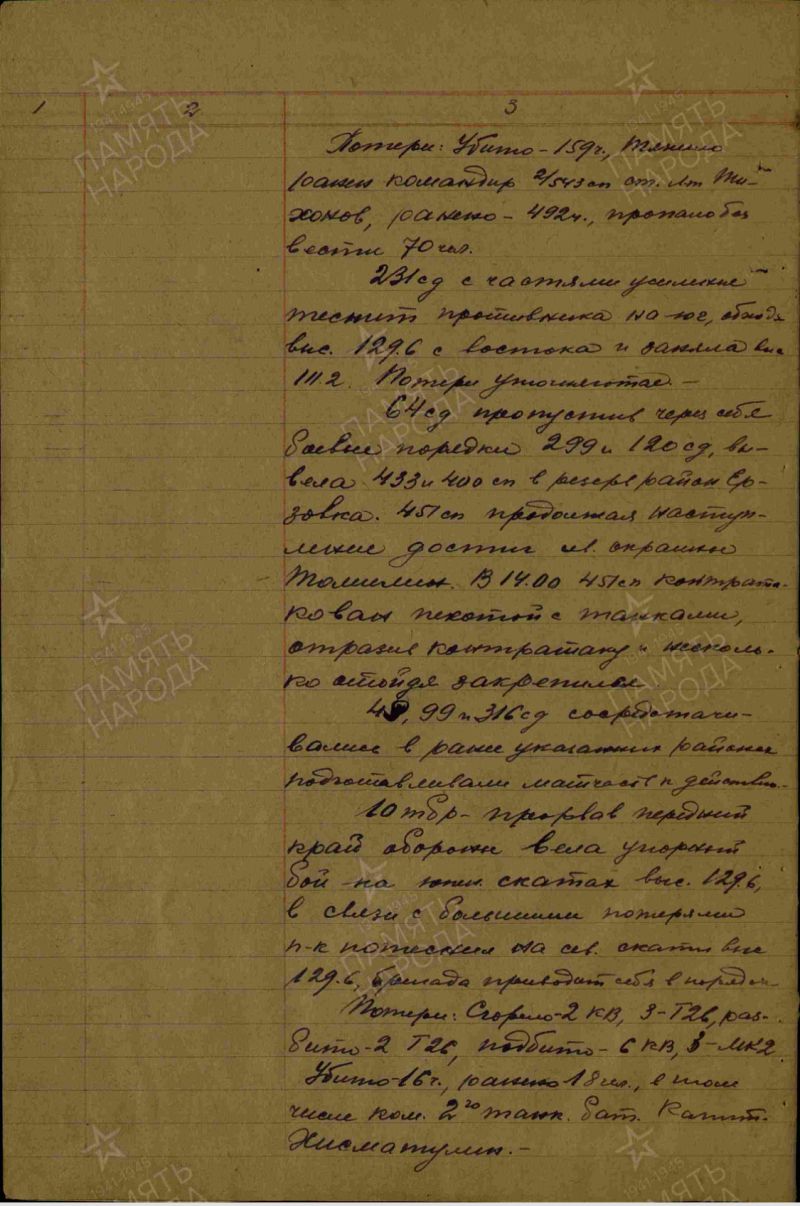 1 2 3
Потери: Убито - 159ч., тяжело
ранен командир 2/543сп ст. лт Ти-
хонов, ранено - 492ч., пропало без
вести 70 чел.
231 сд с частями усиления
теснит противника на юг, обходя
выс. 129.6 с востока и заняла выс
111.2. Потери уточняются. -
64 сд пропустив через себя
боевые порядки 299 и 120 сд, вы-
вела 433 и 400 сп в резерв район Ер-
зовка. 451 сп продолжая наступ-
ление достиг окраины
Томилин. В 14.00 451 сп контрата-
кован пехотой с танками,
отразил контратаку и несколь-
ко отойдя закрепился
99 и 316 сд сосредотачи-
вались в ране указанных районах
подготавливали матчасть к действию.
10 тбр - прорвав передний
край обороны вела упорный
бой на скатах выс. 129.6,
в связи с большими потерями
п-к потеснил на сев. скаты выс
129.6, бригада приводит себя в порядок
Потери: Сгорело - 2 КВ, 3 - Т26, раз-
бито - 2 Т26, подбито - 6 КВ, МК2
Убито - 16 ч., ранено 18 чел., в том
числе ком. 2го танк. бат. Капит.
Хисматулин. -
ПАМЯТЬ
НАРОДА
1941-1945